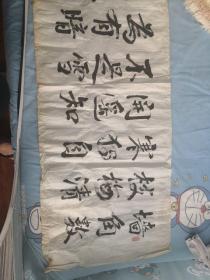 墙角數
枝梅淩
寒独自
開遥知
不是雪
為有暗